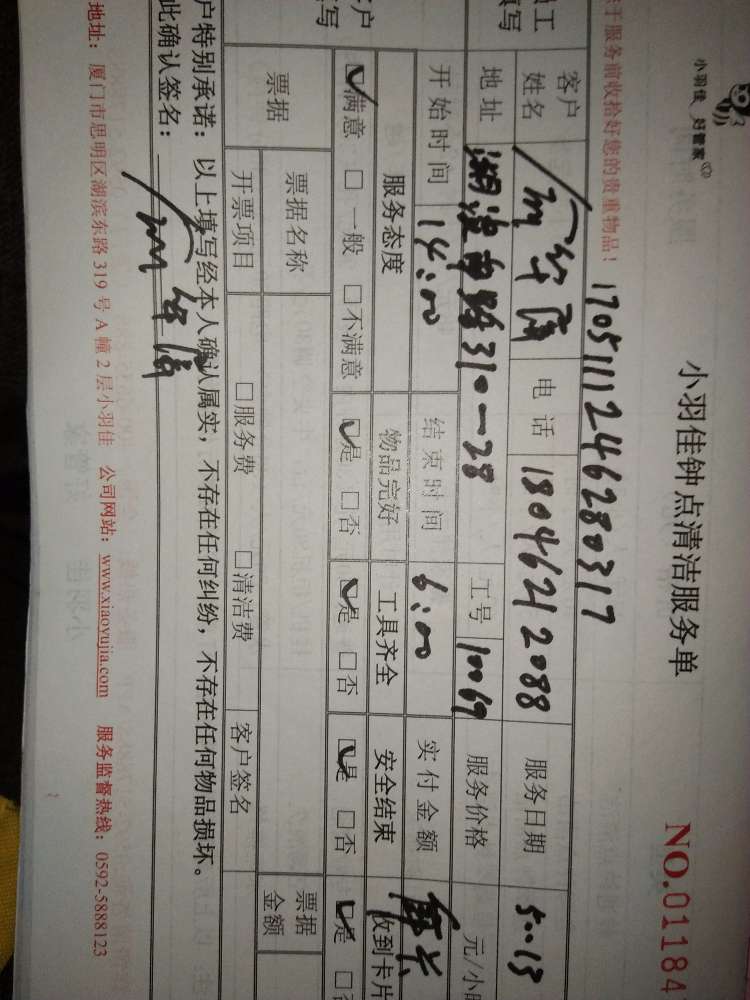 小羽佳 好管家
小羽佳钟点清洁服务单
NO.01184
于服务前收拾好您的贵重物品！
1705111246280317
工
填写
客户姓名 电话 18046212088 服务日期 5.13
地址 湖滨南路310-28 工号 10069 服务价格 元/小时
开始时间 14:00 结束时间 6:00 实付金额
客户
填写
服务态度 物品完好 工具齐全 安全结束 收到卡片
☑满意 □一般 □不满意 ☑是 □否 ☑是 □否 ☑是 □否 ☑是 □
票据 票据名称 票据金额
开票项目 □服务费 □清洁费 客户签名
户特别承诺：以上填写经本人确认属实，不存在任何纠纷，不存在任何物品损坏。
此确认签名：
地址：厦门市思明区湖滨东路319号A幢2层小羽佳 公司网站：www.xiaoyujia.com 服务监督热线：0592-5888123